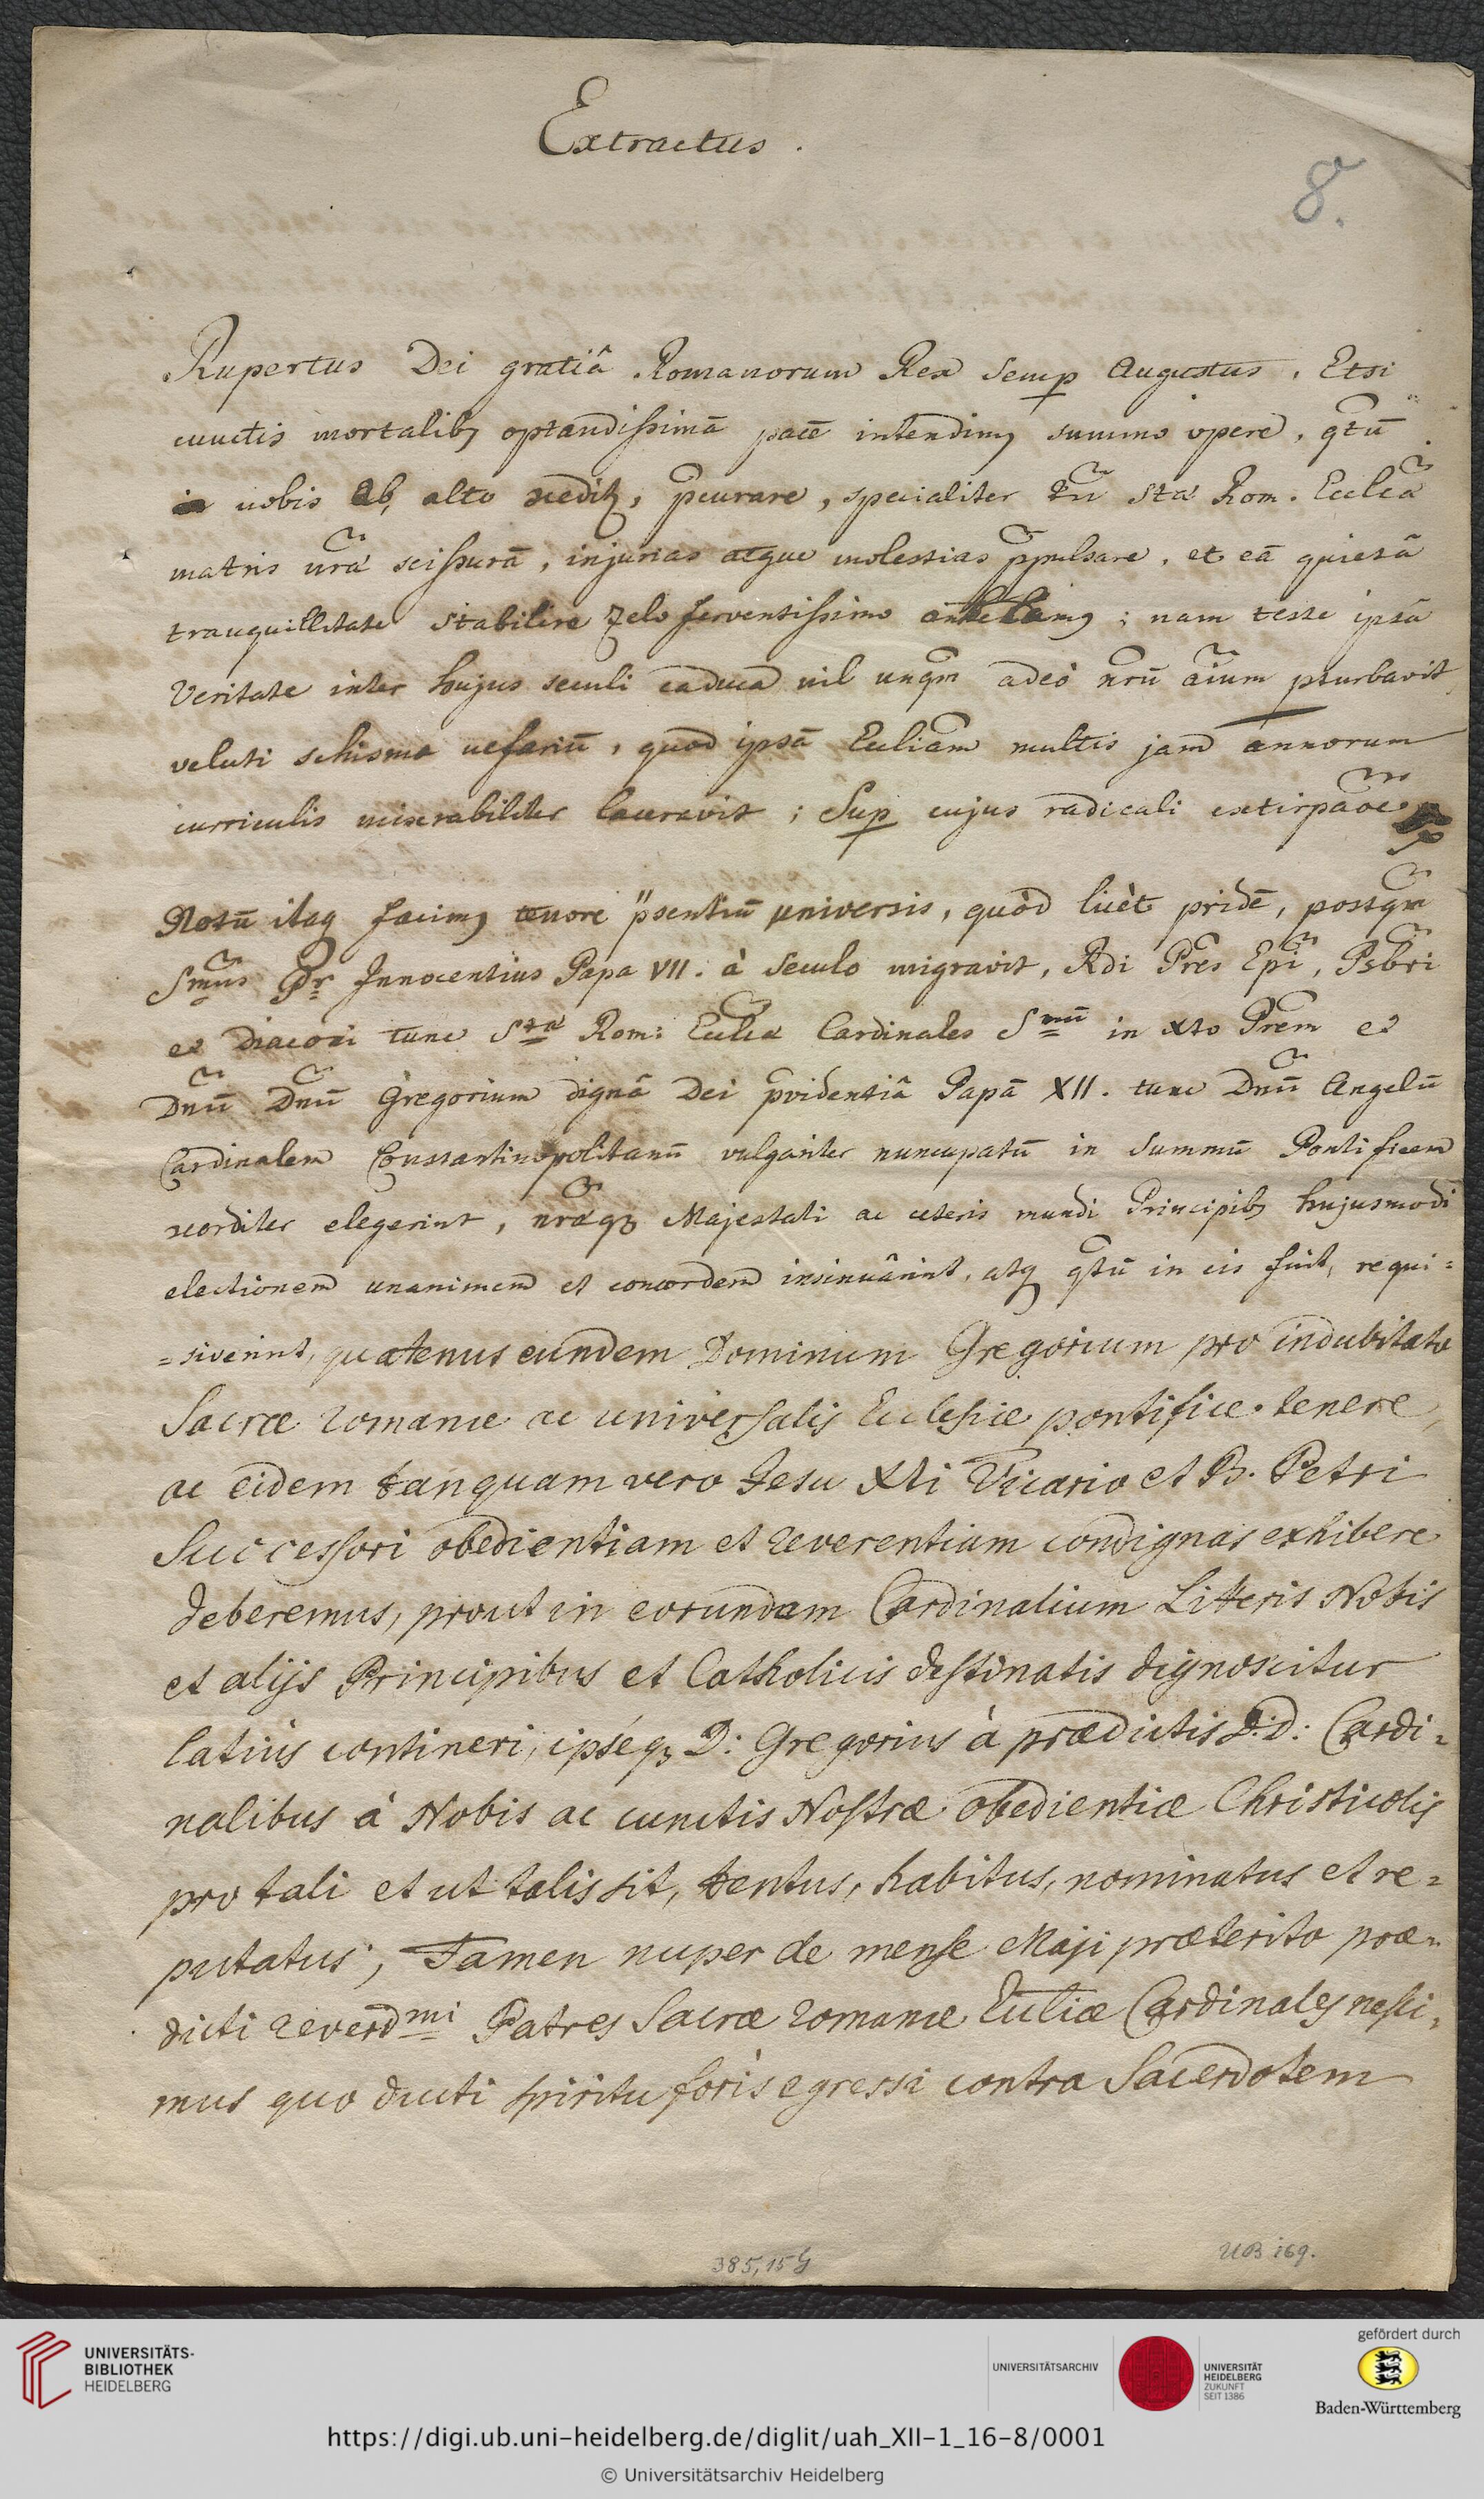 Extractus.
8.
Rupertus Dei gratiâ Romanorum Rex semp Augustus. Etsi
cunctis mortalibꝫ optandissimā pacē intendimꝫ summo opere, qtū
nobis ab alto , pcurare, specialiter Sta Rom. Eccliā
matris nrā scissurā, injurias atque molestias ppulsare, et eā quietâ
tranquillitate stabilire zelo ferventissimo anhelamꝫ; nam teste ipsâ
Veritate inter hujus seculi caduca nil unqm adeò nrū aium pturbavit
veluti schisma nefariū, quod ipsā Eccliam multis jam annorum
curriculis miserabiliter laceravit; Sup cujus radicali extirpaõe
Notū itaq facimꝫ tenore psentiū universis, quòd licèt pridē, postqm
Smus Pr Innocentius Papa VII. à seculo migravit, Rdi Pres Epi, Psbri
et Diaconi tunc Sta Rom: Eccliæ Cardinales Smū in Xto Prem et
Dnū Dnū Gregorium dignâ Dei pvidentiâ Papā XII. tunc Dnū Angelū
Cardinalem Constantinopolitanū vulgariter nuncupatū in Summū Pontificem
elegerint, nræqꝫ Majestati ac ceteris mundi Principibꝫ hujusmodi
electionem unanimem et concordem insinuârint, atq qtū in eis fuit, requi=
=siverint, quatenus eundem Dominum Gregorium pro indubitato
Sacræ romanæ ac universalis Ecclesiæ pontifice tenere,
ac eidem tanquam vero Jesu Xti Vicario et B. Petri
Successori obedientiam et reverentiam condignas exhibere
deberemus, prout in eorundem Cardinalium Litteris Nobis
et alijs Principibus et Catholicis destinatis dignoscitur
latiùs contineri, ipséqꝫ D: Gregorius à prædictis D.D: Cardi=
nalibus à Nobis ac cunctis Nostræ obedientiæ Christicolis
pro tali et ut talis sit, tentus, habitus, nominatus et re=
putatus; Tamen nuper de mense Maji præterito præ=
dicti reverdmi Patres Sacræ romanæ Eccliæ Cardinales nesci=
mus quo ducti spiritu foris egressi contra Sacerdotem
385,15 G
UB 169.
UNIVERSITÄTS-
BIBLIOTHEK
HEIDELBERG
UNIVERSITÄTSARCHIV
UNIVERSITÄT
HEIDELBERG
ZUKUNFT
SEIT 1386
gefördert durch
Baden-Württemberg
https://digi.ub.uni-heidelberg.de/diglit/uah_XII-1_16-8/0001
© Universitätsarchiv Heidelberg